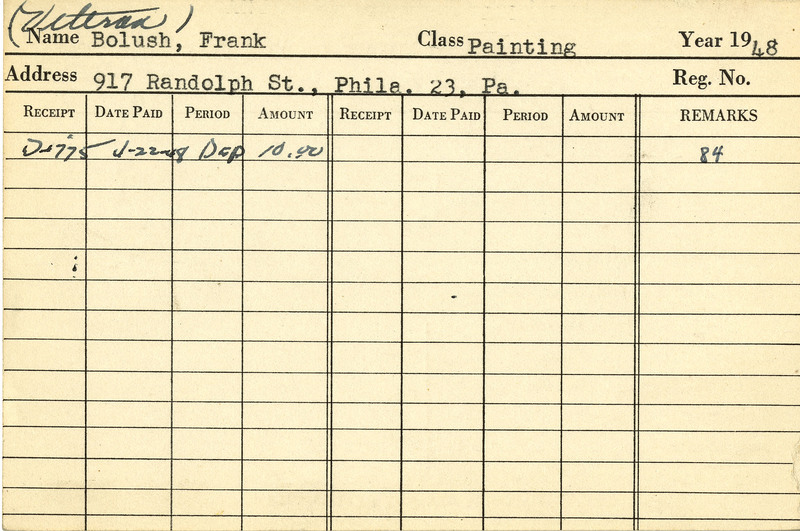 (Veteran)
Name Bolush, Frank Class Painting Year 1948
Address 917 Randolph St., Phila. 23, Pa. Reg. No.
RECEIPT DATE PAID PERIOD AMOUNT RECEIPT DATE PAID PERIOD AMOUNT REMARKS
Dep 10.00 84